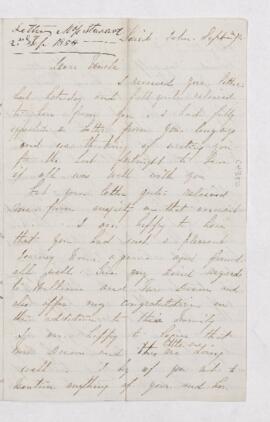 Saint John Sept
2nd Sept. 1854
Dear Uncle
I received your letter
last Saturday and felt quite relieved
to hear from you as I had fully
expected a letter from you long ago
and was thinking of writing you
for the last fortnight to know
if all was well with you
but your letter quite relieved
me from anxiety on that account
I am happy to hear
that you had such a pleasant
Journey home again and found
all well. Give my kind regards
to William and Mrs
also offer my congratulations on
the addition to their family
I am happy to
Mrs and the are doing
well. I beg of you not to
mention anything of your